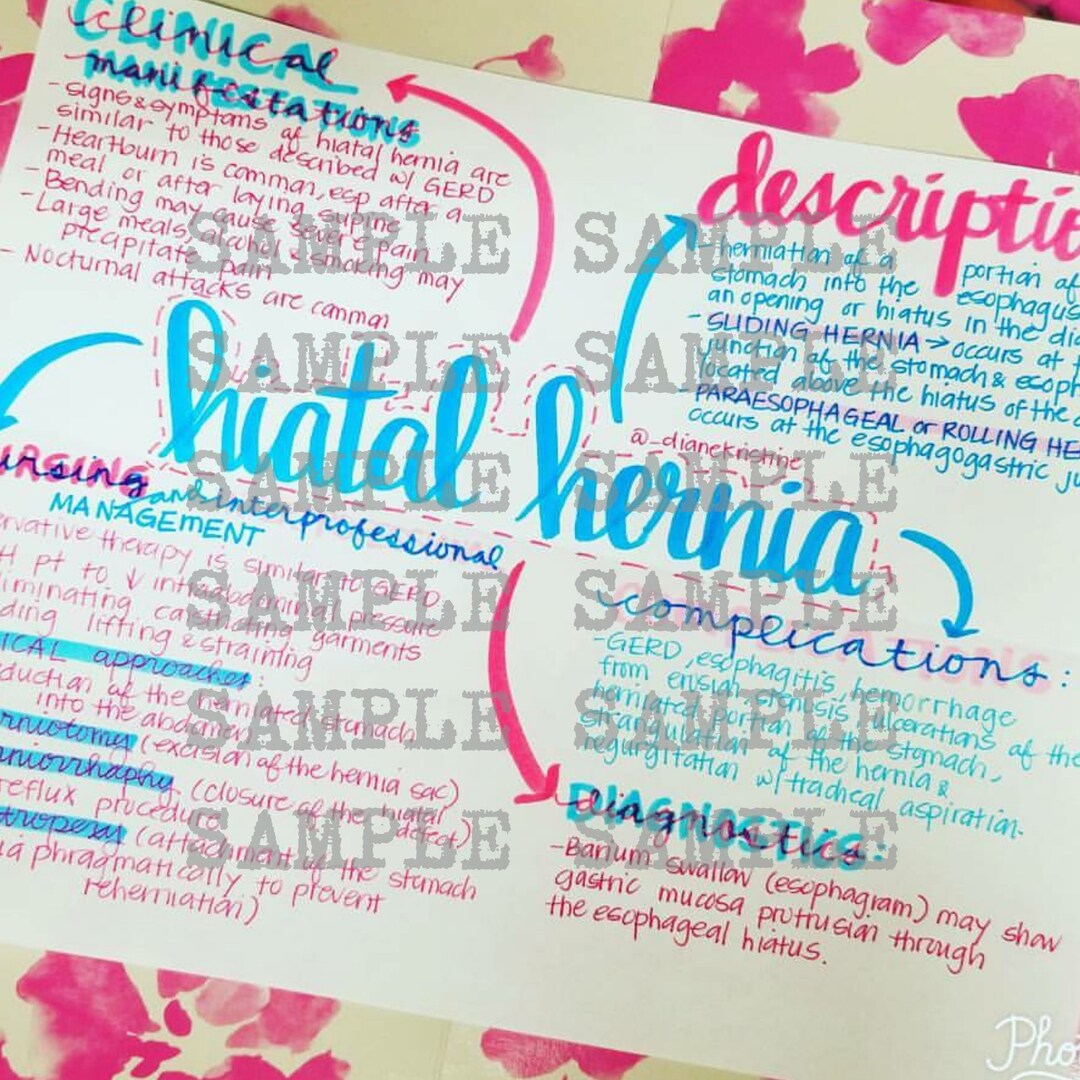 clinical
manifestations
- signs & symptoms of hiatal hernia are
similar to those described w/ GERD
- Heartburn is common, esp after a
meal or after laying supine
- Bending may cause severe pain
- Large meals, alcohol & smoking may
precipitate pain
- Nocturnal attacks are common
descriptio
- herniation of a portion of
stomach into the esophagus
an opening or hiatus in the dia
- SLIDING HERNIA → occurs at
junction of the stomach & esoph
located above the hiatus of the
- PARAESOPHAGEAL or ROLLING HE
occurs at the esophagogastric ju
hiatal hernia
@_dianekristine
ursing and interprofessional
MANAGEMENT
rvative therapy is similar to GERD
H pt to ↓ intraabdominal pressure
liminating constricting garments
ding lifting & straining
ICAL approaches:
duction of the herniated stomach
into the abdomen
rniotomy (excision of the hernia sac)
niorrhaphy (closure of the hiatal
defect)
reflux procedure
tropexy (attachment of the stomach
ia phragmatically to prevent
reherniation)
complications:
- GERD, esophagitis, hemorrhage
from erosion, stenosis, ulcerations of the
herniated portion of the stomach,
strangulation of the hernia &
regurgitation w/ tracheal aspiration.
diagnostics.
- Barium swallow (esophagram) may show
gastric mucosa protrusion through
the esophageal hiatus.
SAMPLE SAMPLE
SAMPLE SAMPLE
SAMPLE SAMPLE
SAMPLE SAMPLE
SAMPLE SAMPLE
SAMPLE SAMPLE
Pho